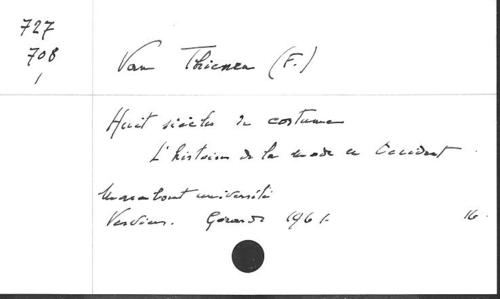 727
708
1
Van Thienen (F.)
Huit siècles de costume
L'histoire de la mode en Occident.
Marabout université
Verviers. Gérard 1961. 16